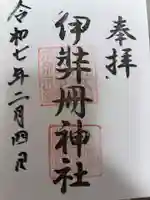 奉拝
伊弉冊神社
令和七年二月四日